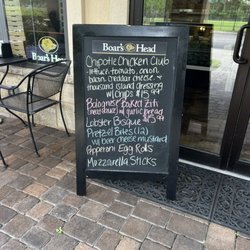 Boar's Head
Boar's Head
Chipotle Chicken Club
lettuce, tomato, onion,
bacon, cheddar cheese &
thousand island dressing
w/ Chips $15.99
Bolognese Baked Ziti
(meat sauce) w/ garlic bread
$15.99
Lobster Bisque
Pretzel Bites (12)
w/ beer cheese & mustard
Pepperoni Egg Rolls
Mozzarella Sticks